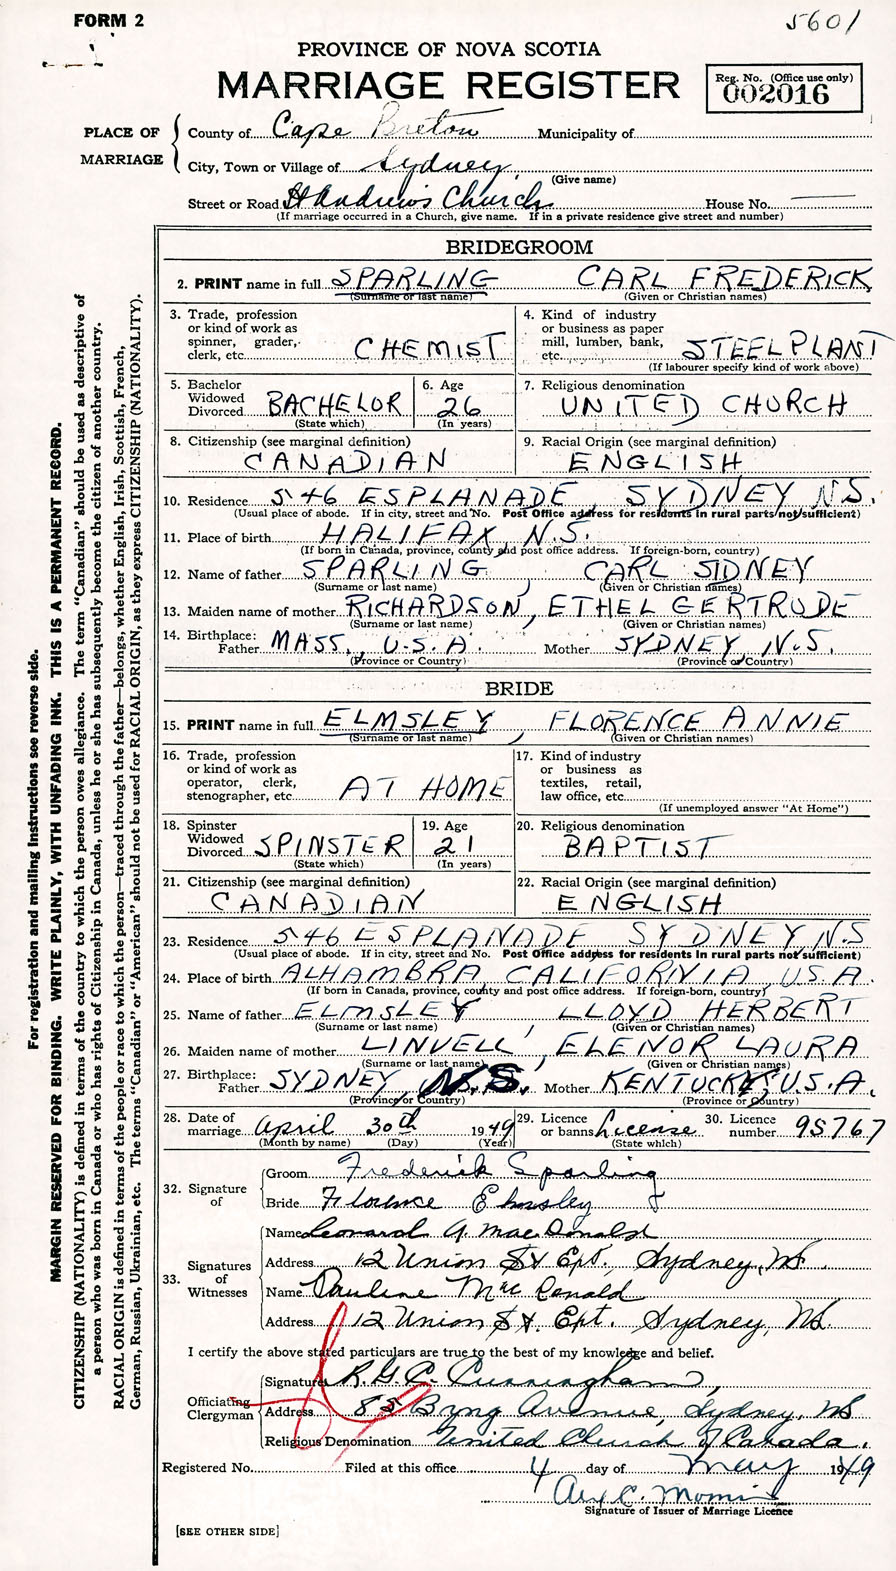 FORM 2
5601
PROVINCE OF NOVA SCOTIA
MARRIAGE REGISTER
Reg. No. (Office use only)
002016
PLACE OF MARRIAGE
County of Cape Breton Municipality of
City, Town or Village of Sydney,
(Give name)
Street or Road St Andrew's Church House No.
(If marriage occurred in a Church, give name. If in a private residence give street and number)
BRIDEGROOM
2. PRINT name in full SPARLING CARL FREDERICK
(Surname or last name) (Given or Christian names)
3. Trade, profession or kind of work as spinner, grader, clerk, etc. CHEMIST
4. Kind of industry or business as paper mill, lumber, bank, etc. STEEL PLANT
(If labourer specify kind of work above)
5. Bachelor Widowed Divorced BACHELOR
(State which)
6. Age 26
(In years)
7. Religious denomination
UNITED CHURCH
8. Citizenship (see marginal definition)
CANADIAN
9. Racial Origin (see marginal definition)
ENGLISH
10. Residence 546 ESPLANADE SYDNEY N.S.
(Usual place of abode. If in city, street and No. Post Office address for residents in rural parts not sufficient)
11. Place of birth HALIFAX, N.S.
(If born in Canada, province, county and post office address. If foreign-born, country)
12. Name of father SPARLING, CARL SIDNEY
(Surname or last name) (Given or Christian names)
13. Maiden name of mother RICHARDSON, ETHEL GERTRUDE
(Surname or last name) (Given or Christian names)
14. Birthplace: Father MASS., U.S.A. Mother SYDNEY, N.S.
(Province or Country) (Province or Country)
BRIDE
15. PRINT name in full ELMSLEY, FLORENCE ANNIE
(Surname or last name) (Given or Christian names)
16. Trade, profession or kind of work as operator, clerk, stenographer, etc. AT HOME
17. Kind of industry or business as textiles, retail, law office, etc.
(If unemployed answer "At Home")
18. Spinster Widowed Divorced SPINSTER
(State which)
19. Age 21
(In years)
20. Religious denomination
BAPTIST
21. Citizenship (see marginal definition)
CANADIAN
22. Racial Origin (see marginal definition)
ENGLISH
23. Residence 546 ESPLANADE SYDNEY N.S
(Usual place of abode. If in city, street and No. Post Office address for residents in rural parts not sufficient)
24. Place of birth ALHAMBRA CALIFORIVIA, U.S.A
(If born in Canada, province, county and post office address. If foreign-born, country)
25. Name of father ELMSLEY, LLOYD HERBERT
(Surname or last name) (Given or Christian names)
26. Maiden name of mother LINVELL, ELENOR LAURA
(Surname or last name) (Given or Christian names)
27. Birthplace: Father SYDNEY N.S. Mother KENTUCKY, U.S.A.
(Province or Country) (Province or Country)
28. Date of marriage April 30th 1949
(Month by name) (Day) (Year)
29. Licence or banns License
(State which)
30. Licence number 95767
32. Signature of
Groom Frederick Sparling
Bride Florence Elmsley
33. Signatures of Witnesses
Name Leonard A. MacDonald
Address 12 Union St Ext. Sydney, N.S.
Name Pauline MacDonald
Address 12 Union St. Ext. Sydney, N.S.
I certify the above stated particulars are true to the best of my knowledge and belief.
Officiating Clergyman
Signature R.G.C. Cunningham,
Address Byng Avenue, Sydney, NS
Religious Denomination United Church of Canada.
Registered No. Filed at this office 4 day of May 1949
C.
Signature of Issuer of Marriage Licence
[SEE OTHER SIDE]
For registration and mailing instructions see reverse side.
MARGIN RESERVED FOR BINDING. WRITE PLAINLY, WITH UNFADING INK. THIS IS A PERMANENT RECORD.
CITIZENSHIP (NATIONALITY) is defined in terms of the country to which the person owes allegiance. The term "Canadian" should be used as descriptive of
a person who was born in Canada or who has rights of Citizenship in Canada, unless he or she has subsequently become the citizen of another country.
RACIAL ORIGIN is defined in terms of the people or race to which the person—traced through the father—belongs, whether English, Irish, Scottish, French,
German, Russian, Ukrainian, etc. The terms "Canadian" or "American" should not be used for RACIAL ORIGIN, as they express CITIZENSHIP (NATIONALITY).